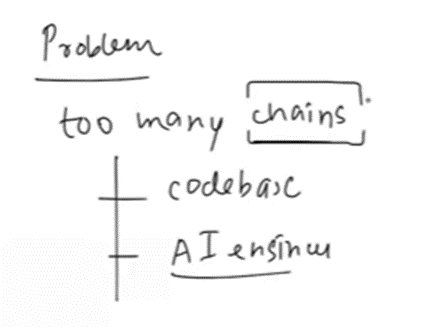 Problem
too many chains
codebase
AI engineer